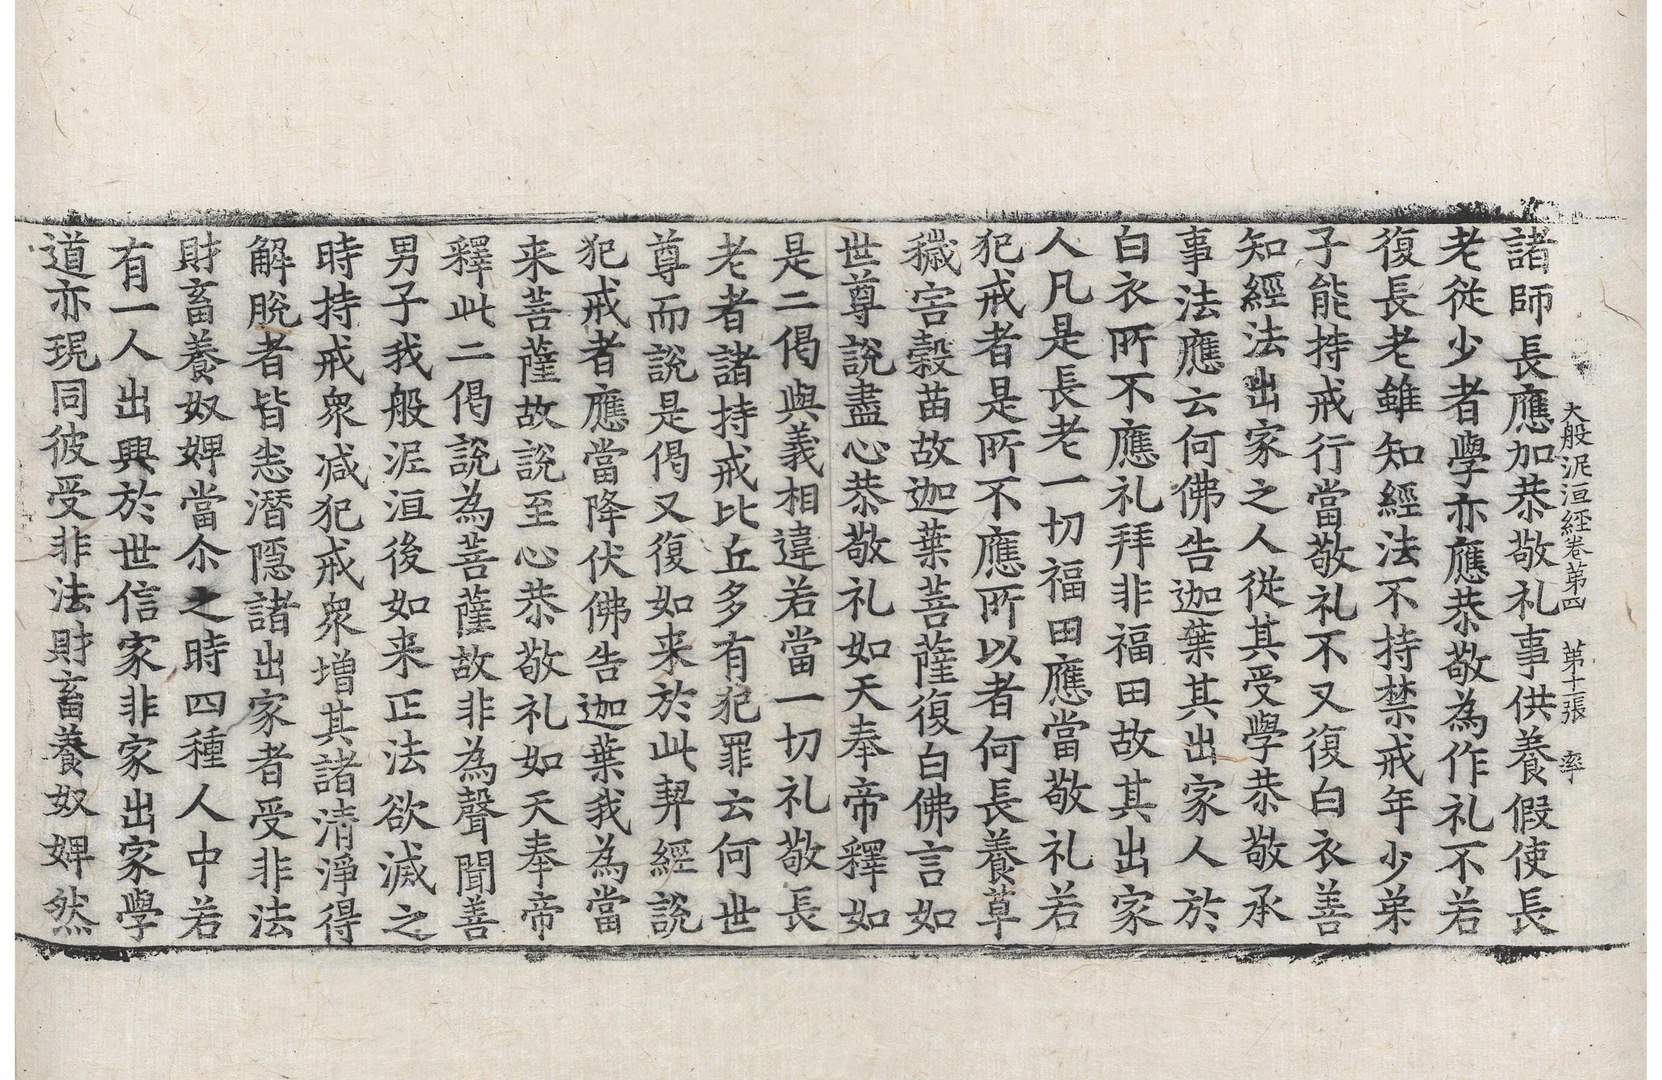 大般泥洹經卷第四 第十張 率
諸師長應加恭敬礼事供養假使長
老從少者學亦應恭敬為作礼不若
復長老雖知經法不持禁戒年少弟
子能持戒行當敬礼不又復白衣善
知經法出家之人從其受學恭敬承
事法應云何佛告迦葉其出家人於
白衣所不應礼拜非福田故其出家
人凡是長老一切福田應當敬礼若
犯戒者是所不應所以者何長養草
穢害穀苗故迦葉菩薩復白佛言如
世尊說盡心恭敬礼如天奉帝釋如
是二偈與義相違若當一切礼敬長
老者諸持戒比丘多有犯罪云何世
尊而說是偈又復如来於此契經說
犯戒者應當降伏佛告迦葉我為當
来菩薩故說至心恭敬礼如天奉帝
釋此二偈說為菩薩故非為聲聞善
男子我般泥洹後如来正法欲滅之
時持戒衆減犯戒衆增其諸清淨得
解脫者皆悉潛隱諸出家者受非法
財畜養奴婢當尒之時四種人中若
有一人出興於世信家非家出家學
道亦現同彼受非法財畜養奴婢然